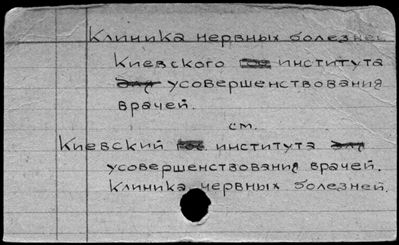 Клиника нервных болезней
Киевского гос института
для усовершенствования
врачей.
см.
Киевский гос института для
усовершенствования врачей.
Клиника нервных болезней.